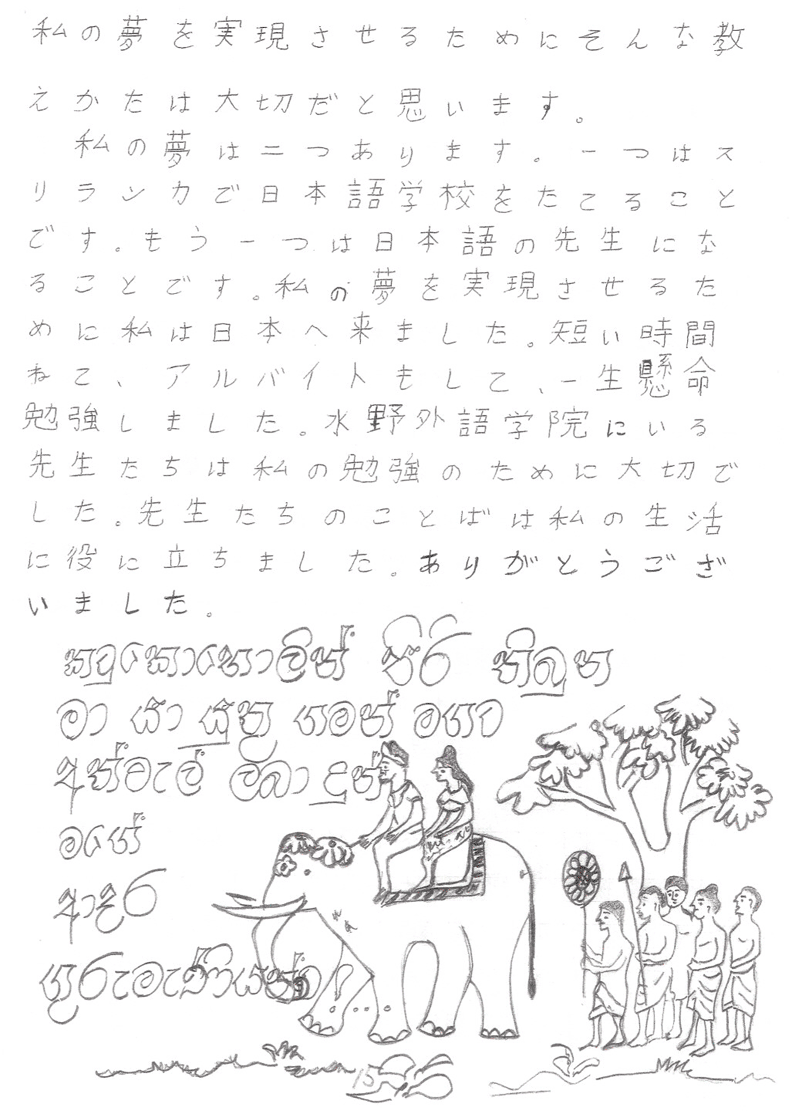 私の夢を実現させるためにそんな教
えかたは大切だと思います。
私の夢は二つあります。一つはス
リランカで日本語学校をたてること
です。もう一つは日本語の先生にな
ることです。私の夢を実現させるた
めに私は日本へ来ました。短い時間
ねて、アルバイトもして、一生懸命
勉強しました。水野外語学院にいる
先生たちは私の勉強のために大切で
した。先生たちのことばは私の生活
に役に立ちました。ありがとうござ
いました。
පිරි
මා යා යුතු යමන් මගට
අත්වැල් වීලා දුන්
මගේ
ආදර
ගුරු
15